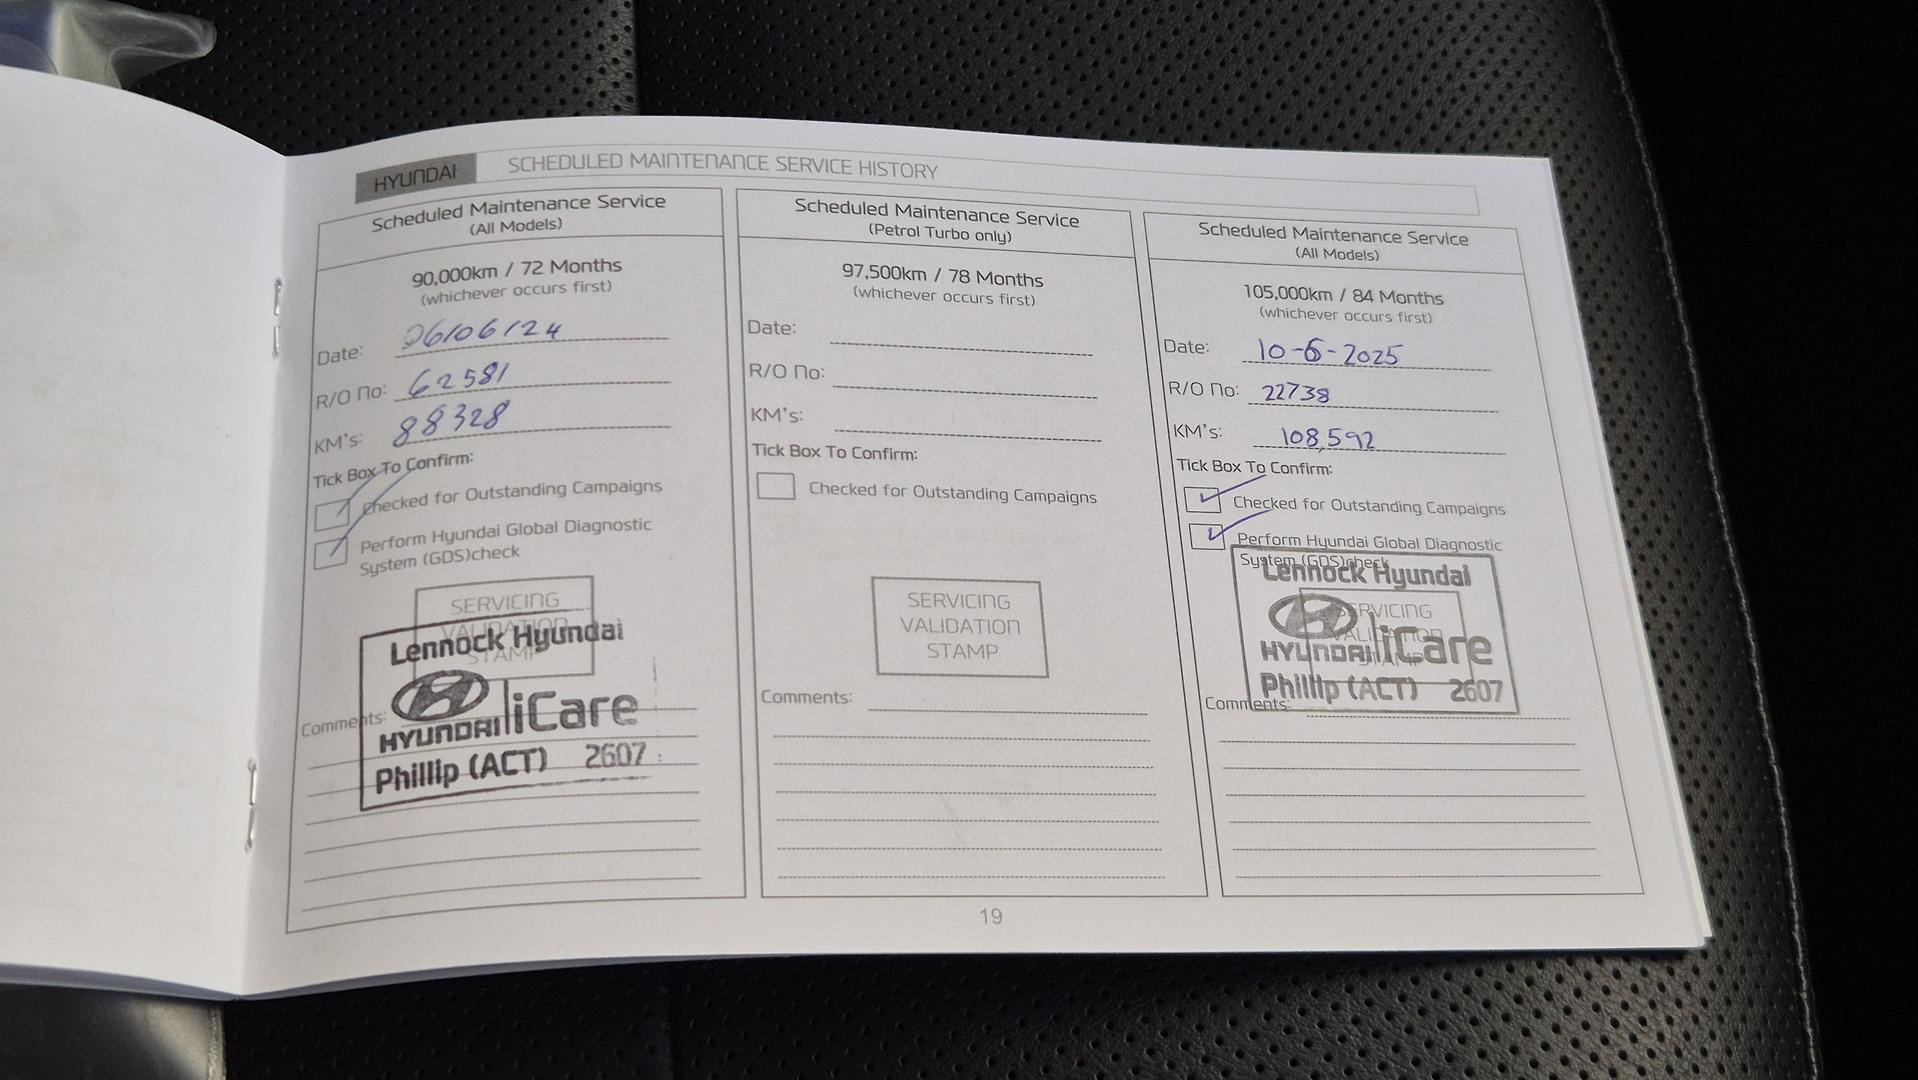 HYUNDAI SCHEDULED MAINTENANCE SERVICE HISTORY
Scheduled Maintenance Service
(All Models)
90,000km / 72 Months
(whichever occurs first)
Date: 06/06/24
R/O No: 62581
KM's: 88328
Tick Box To Confirm:
Checked for Outstanding Campaigns
Perform Hyundai Global Diagnostic
System (GDS)check
SERVICING
VALIDATION
STAMP
Lennock Hyundai
HYUNDAI iCare
Phillip (ACT) 2607
Comments:
Scheduled Maintenance Service
(Petrol Turbo only)
97,500km / 78 Months
(whichever occurs first)
Date:
R/O No:
KM's:
Tick Box To Confirm:
Checked for Outstanding Campaigns
SERVICING
VALIDATION
STAMP
Comments:
Scheduled Maintenance Service
(All Models)
105,000km / 84 Months
(whichever occurs first)
Date: 10-6-2025
R/O No: 22738
KM's: 108,592
Tick Box To Confirm:
Checked for Outstanding Campaigns
Perform Hyundai Global Diagnostic
System (GDS)check
Lennock Hyundai
SERVICING
VALIDATION
STAMP
HYUNDAI iCare
Phillip (ACT) 2607
Comments:
19